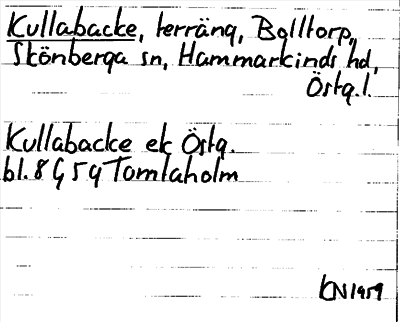 Kullabacke, terräng, Bolltorp,
Skönberga sn, Hammarkinds hd,
Östg. l.
Kullabacke ek Östg.
bl. 8 G 5 g Tomtaholm
KN 1959